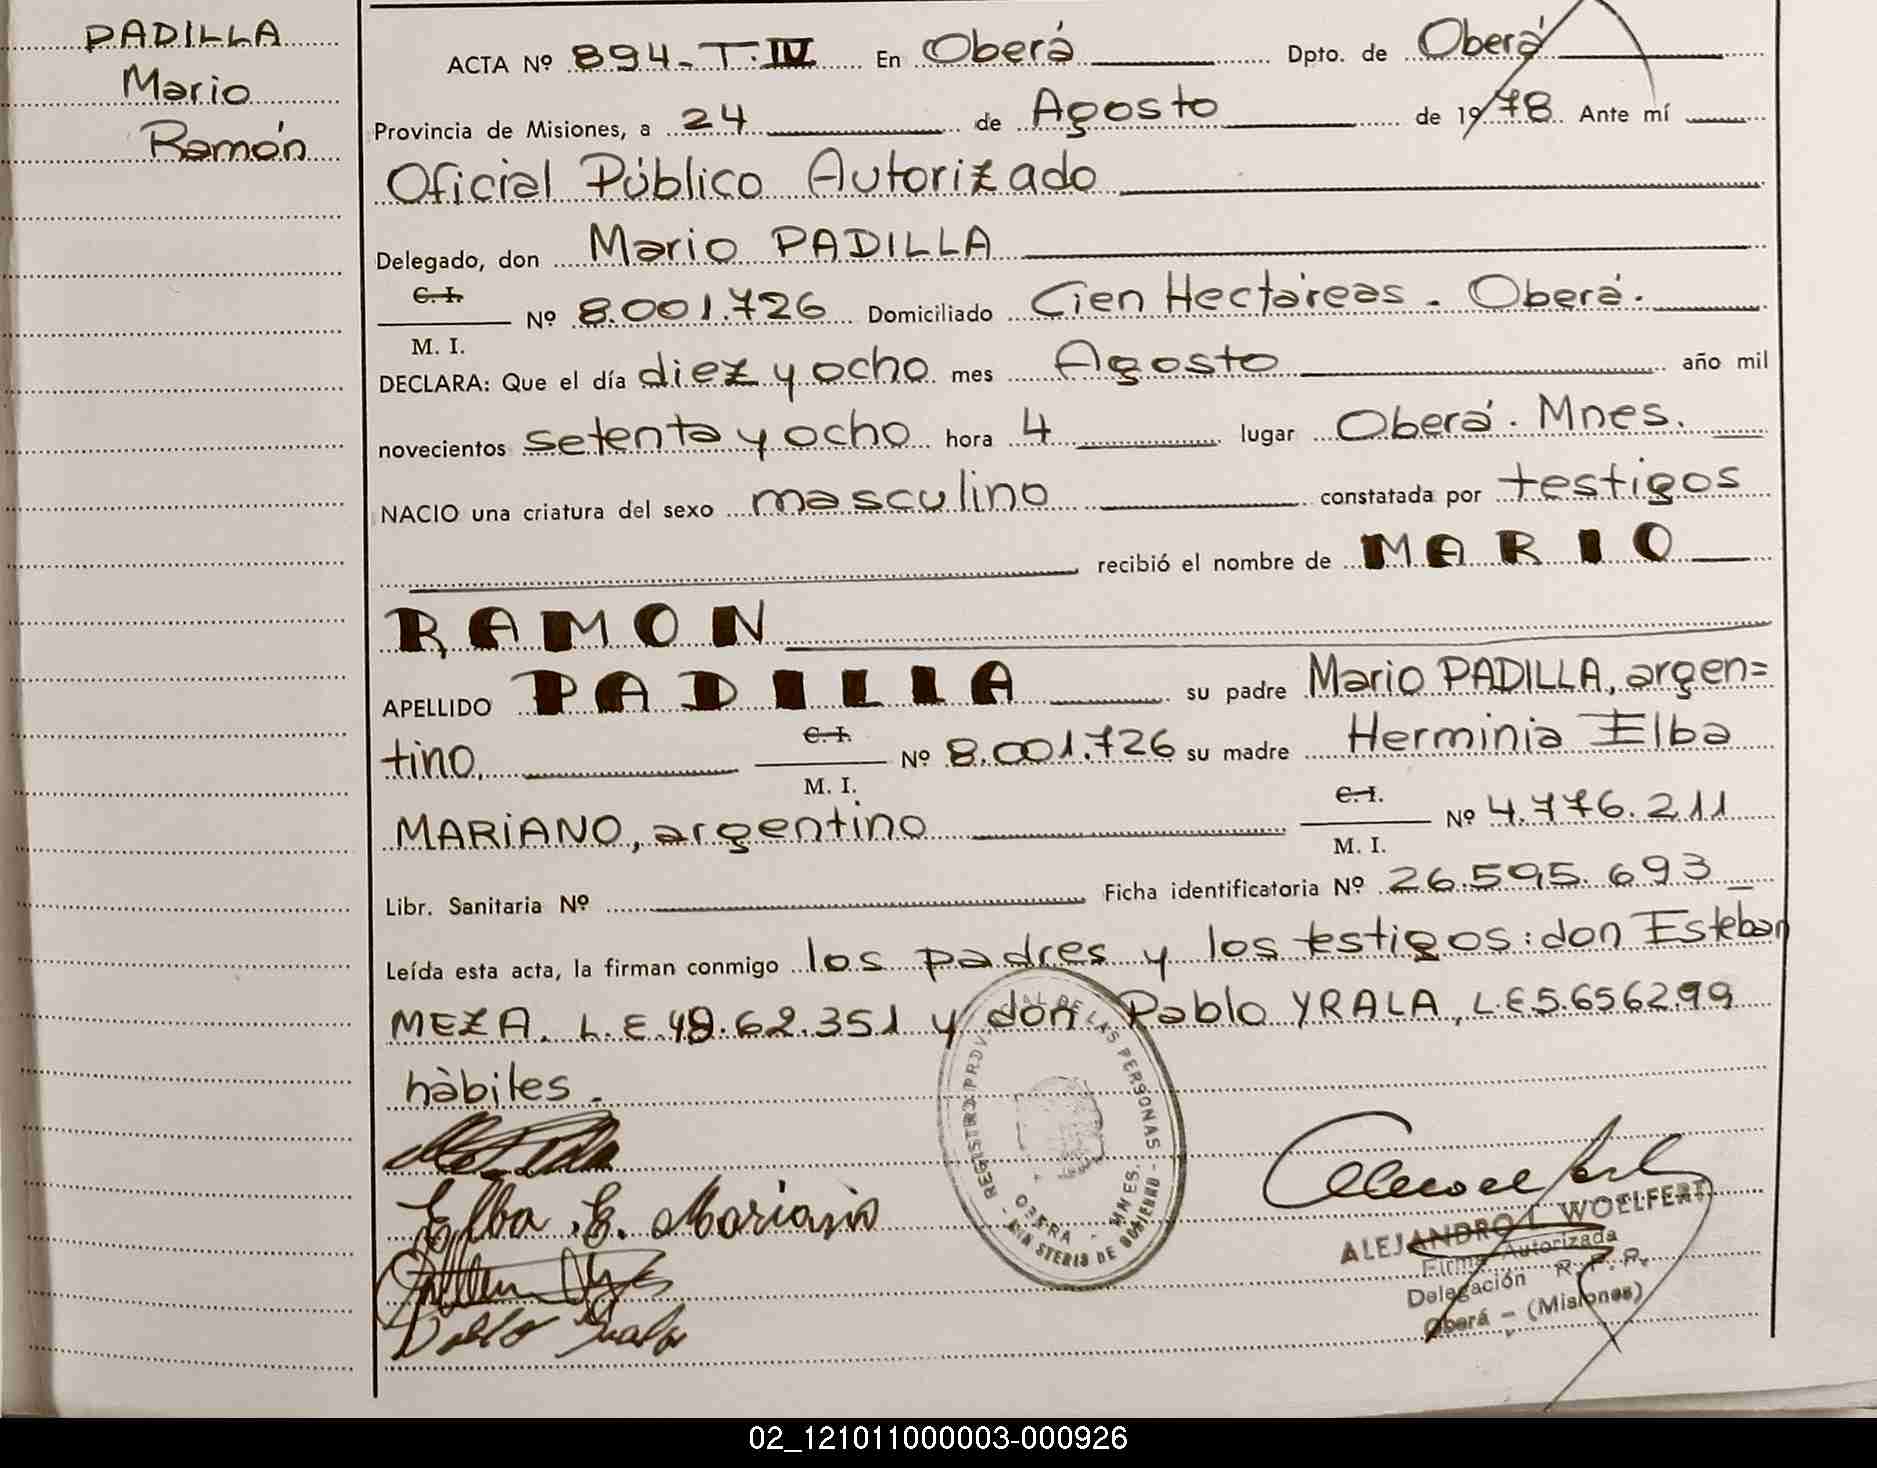 PADILLA
Mario
Ramón
ACTA Nº 894-T·IV En Oberá Dpto. de Oberá
Provincia de Misiones, a 24 de Agosto de 1978 Ante mí
Oficial Público Autorizado
Delegado, don Mario PADILLA
C. I.
M. I. Nº 8.001.726 Domiciliado Cien Hectáreas - Oberá.
DECLARA: Que el día diez y ocho mes Agosto año mil
novecientos setenta y ocho hora 4 lugar Oberá. Mnes.
NACIO una criatura del sexo masculino constatada por testigos
recibió el nombre de MARIO
RAMON
APELLIDO PADILLA su padre Mario PADILLA, argen=
tino. C. I.
M. I. Nº 8.001.726 su madre Herminia Elba
MARIANO, argentino C. I.
M. I. Nº 4.776.211
Libr. Sanitaria Nº Ficha identificatoria Nº 26.595.693
Leída esta acta, la firman conmigo los padres y los testigos: don Esteban
MEZA. L.E. 62.351 y don Pablo YRALA, L.E 5.656299
hàbiles.-
Elba E. Mariano
REGISTRO PROVINCIAL DE LAS PERSONAS - MINISTERIO DE GOBIERNO -
OBERA - MNES.
ALEJANDRO L. WOELFERT
Firma Autorizada
Delegación R. P. P.
Oberá - (Misiones)
02_121011000003-000926